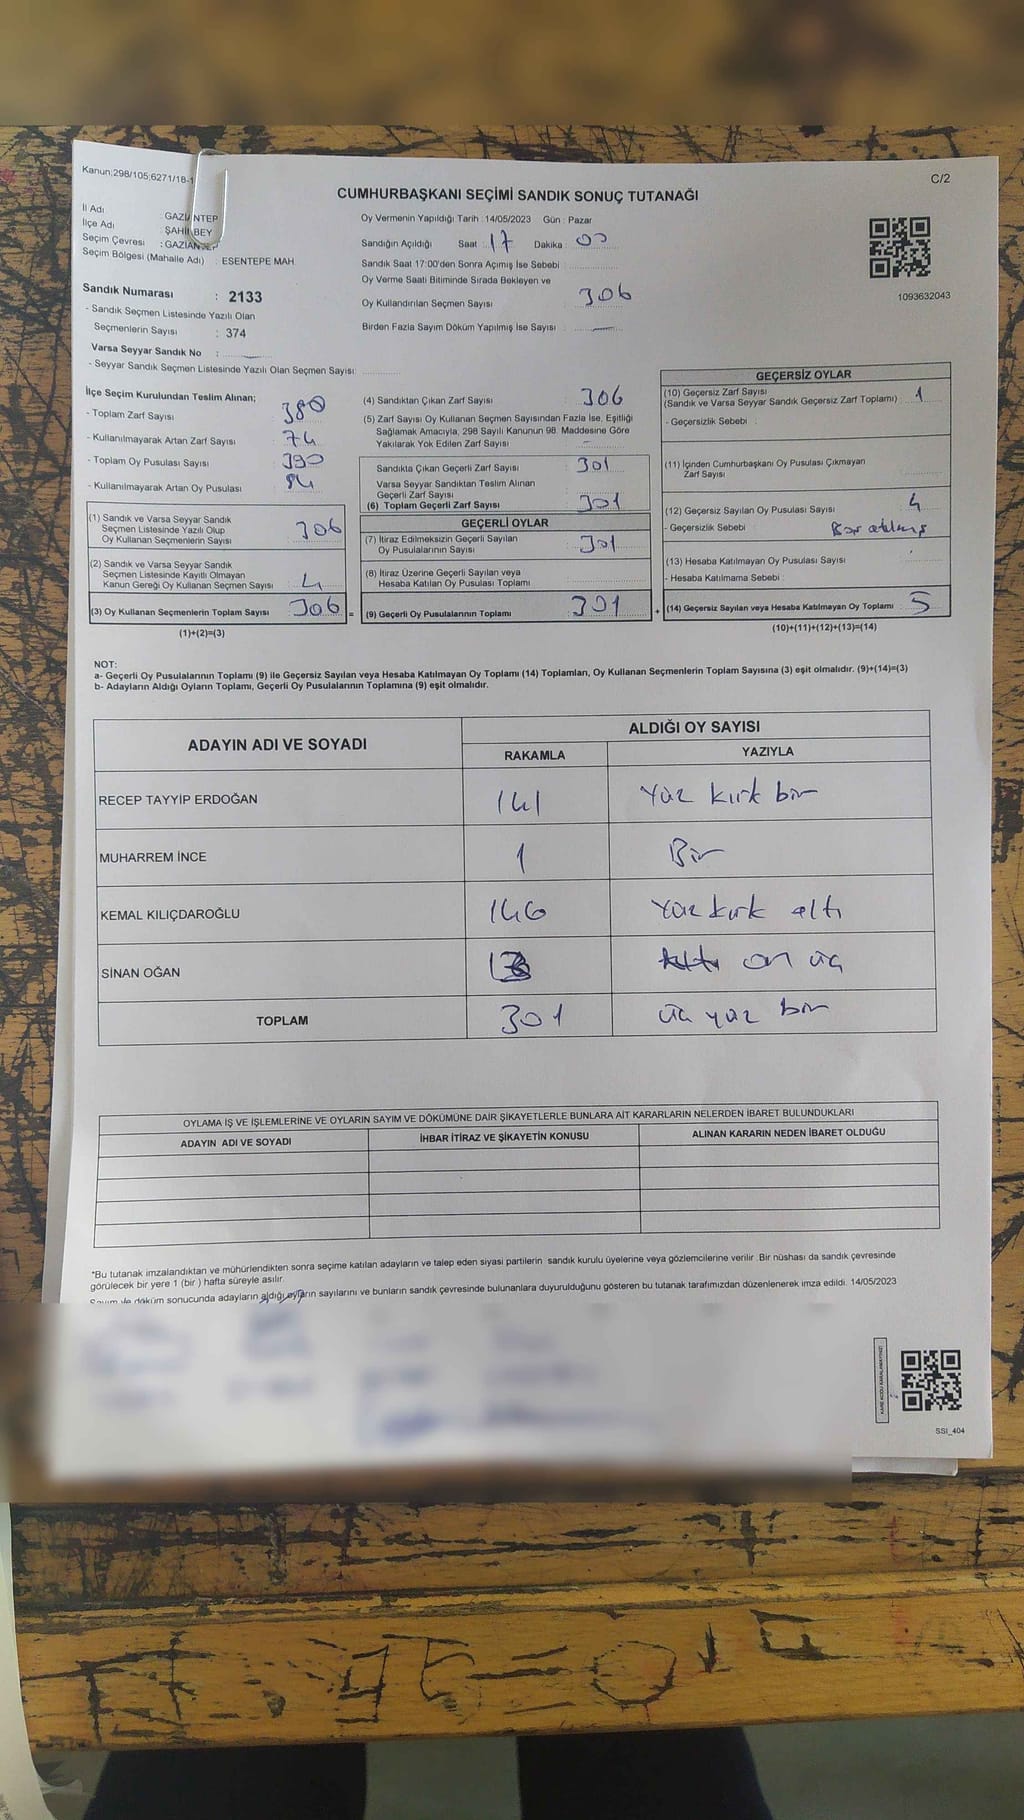 Kanun;298/105;6271/18-1
C/2
CUMHURBAŞKANI SEÇİMİ SANDIK SONUÇ TUTANAĞI
İl Adı : GAZİANTEP
İlçe Adı : ŞAHİNBEY
Seçim Çevresi : GAZİANTEP
Seçim Bölgesi (Mahalle Adı) : ESENTEPE MAH.
Sandık Numarası : 2133
- Sandık Seçmen Listesinde Yazılı Olan
Seçmenlerin Sayısı : 374
Varsa Seyyar Sandık No :
- Seyyar Sandık Seçmen Listesinde Yazılı Olan Seçmen Sayısı:
Oy Vermenin Yapıldığı Tarih :14/05/2023 Gün : Pazar
Sandığın Açıldığı Saat : 17 Dakika : 00
Sandık Saat 17:00'den Sonra Açımış İse Sebebi :
Oy Verme Saati Bitiminde Sırada Bekleyen ve
Oy Kullandırılan Seçmen Sayısı : 306
Birden Fazla Sayım Döküm Yapılmış İse Sayısı :
1093632043
İlçe Seçim Kurulundan Teslim Alınan;
- Toplam Zarf Sayısı 380
- Kullanılmayarak Artan Zarf Sayısı 74
- Toplam Oy Pusulası Sayısı 390
- Kullanılmayarak Artan Oy Pusulası 84
(1) Sandık ve Varsa Seyyar Sandık
Seçmen Listesinde Yazılı Olup
Oy Kullanan Seçmenlerin Sayısı 306
(2) Sandık ve Varsa Seyyar Sandık
Seçmen Listesinde Kayıtlı Olmayan
Kanun Gereği Oy Kullanan Seçmen Sayısı 4
(3) Oy Kullanan Seçmenlerin Toplam Sayısı 306 =
(1)+(2)=(3)
(4) Sandıktan Çıkan Zarf Sayısı 306
(5) Zarf Sayısı Oy Kullanan Seçmen Sayısından Fazla İse, Eşitliği
Sağlamak Amacıyla, 298 Sayılı Kanunun 98. Maddesine Göre
Yakılarak Yok Edilen Zarf Sayısı
Sandıkta Çıkan Geçerli Zarf Sayısı 301
Varsa Seyyar Sandıktan Teslim Alınan
Geçerli Zarf Sayısı
(6) Toplam Geçerli Zarf Sayısı 301
GEÇERLİ OYLAR
(7) İtiraz Edilmeksizin Geçerli Sayılan
Oy Pusulalarının Sayısı 301
(8) İtiraz Üzerine Geçerli Sayılan veya
Hesaba Katılan Oy Pusulası Toplamı
(9) Geçerli Oy Pusulalarının Toplamı 301 +
GEÇERSİZ OYLAR
(10) Geçersiz Zarf Sayısı
(Sandık ve Varsa Seyyar Sandık Geçersiz Zarf Toplamı) 1
- Geçersizlik Sebebi :
(11) İçinden Cumhurbaşkanı Oy Pusulası Çıkmayan
Zarf Sayısı
(12) Geçersiz Sayılan Oy Pusulası Sayısı 4
- Geçersizlik Sebebi Boş atılmış
(13) Hesaba Katılmayan Oy Pusulası Sayısı
- Hesaba Katılmama Sebebi :
(14) Geçersiz Sayılan veya Hesaba Katılmayan Oy Toplamı 5
(10)+(11)+(12)+(13)=(14)
NOT:
a- Geçerli Oy Pusulalarının Toplamı (9) ile Geçersiz Sayılan veya Hesaba Katılmayan Oy Toplamı (14) Toplamları, Oy Kullanan Seçmenlerin Toplam Sayısına (3) eşit olmalıdır. (9)+(14)=(3)
b- Adayların Aldığı Oyların Toplamı, Geçerli Oy Pusulalarının Toplamına (9) eşit olmalıdır.
ADAYIN ADI VE SOYADI ALDIĞI OY SAYISI
RAKAMLA YAZIYLA
RECEP TAYYİP ERDOĞAN 141 Yüz kırk bir
MUHARREM İNCE 1 Bir
KEMAL KILIÇDAROĞLU 146 Yüz kırk altı
SİNAN OĞAN 13 on üç
TOPLAM 301 üç yüz bir
OYLAMA İŞ VE İŞLEMLERİNE VE OYLARIN SAYIM VE DÖKÜMÜNE DAİR ŞİKAYETLERLE BUNLARA AİT KARARLARIN NELERDEN İBARET BULUNDUKLARI
ADAYIN ADI VE SOYADI İHBAR İTİRAZ VE ŞİKAYETİN KONUSU ALINAN KARARIN NEDEN İBARET OLDUĞU
*Bu tutanak imzalandıktan ve mühürlendikten sonra seçime katılan adayların ve talep eden siyasi partilerin sandık kurulu üyelerine veya gözlemcilerine verilir .Bir nüshası da sandık çevresinde
görülecek bir yere 1 (bir ) hafta süreyle asılır.
Sayım ve döküm sonucunda adayların aldığı oyların sayılarını ve bunların sandık çevresinde bulunanlara duyurulduğunu gösteren bu tutanak tarafımızdan düzenlenerek imza edildi. 14/05/2023
SSI_404